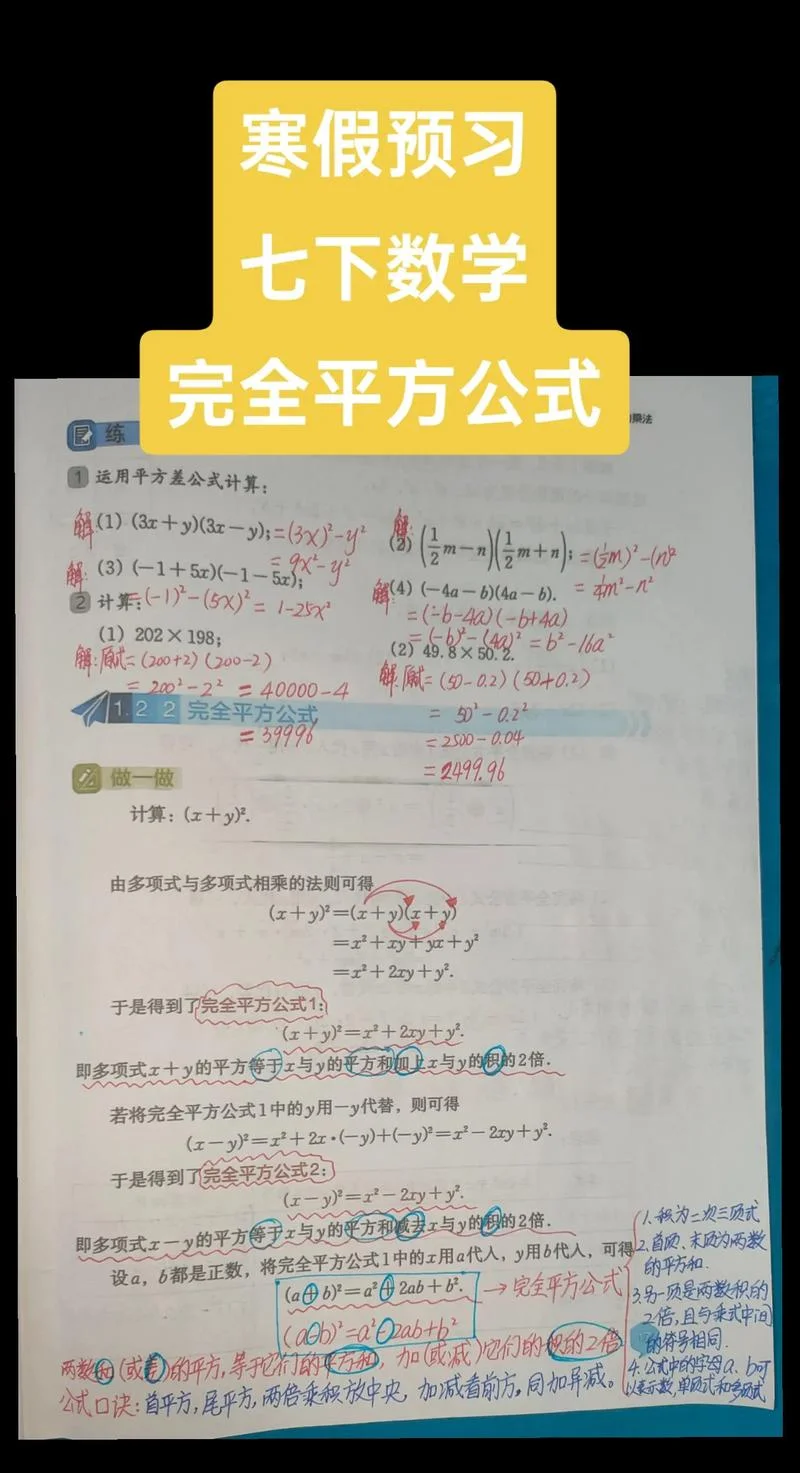 寒假预习
七下数学
完全平方公式
练
乘法
1 运用平方差公式计算：
解(1) (3x+y)(3x-y); =(3x)²-y²
=9x²-y²
解(2) (1/2m-n)(1/2m+n); =(1/2m)²-(n)²
=1/4m²-n²
解(3) (-1+5x)(-1-5x);
=(-1)²-(5x)²=1-25x²
解(4) (-4a-b)(4a-b).
=(-b-4a)(-b+4a)
=(-b)²-(4a)²=b²-16a²
2 计算：
(1) 202×198;
解:原式=(200+2)(200-2)
=200²-2²=40000-4
=39996
(2) 49.8×50.2.
解:原式=(50-0.2)(50+0.2)
=50²-0.2²
=2500-0.04
=2499.96
1.2.2 完全平方公式
做一做
计算：(x+y)².
由多项式与多项式相乘的法则可得
(x+y)²=(x+y)(x+y)
=x²+xy+yx+y²
=x²+2xy+y².
于是得到了完全平方公式1：
(x+y)²=x²+2xy+y².
即多项式x+y的平方等于x与y的平方和加上x与y的积的2倍.
若将完全平方公式1中的y用-y代替，则可得
(x-y)²=x²+2x·(-y)+(-y)²=x²-2xy+y².
于是得到了完全平方公式2：
(x-y)²=x²-2xy+y².
即多项式x-y的平方等于x与y的平方和减去x与y的积的2倍.
设a，b都是正数，将完全平方公式1中的x用a代入，y用b代入，可得
(a+b)²=a²+2ab+b². →完全平方公式
(a-b)²=a²-2ab+b²
1.积为二次三项式
2.首项、末项为两数
的平方和.
3.另一项是两数积的
2倍,且与乘式中间
的符号相同.
4.公式中的字母a、b可
以表示数,单项式和多项式
两数和(或差)的平方,等于它们的平方和,加(或减)它们的积的2倍
公式口诀:首平方,尾平方,两倍乘积放中央,加减看前方。同加异减。